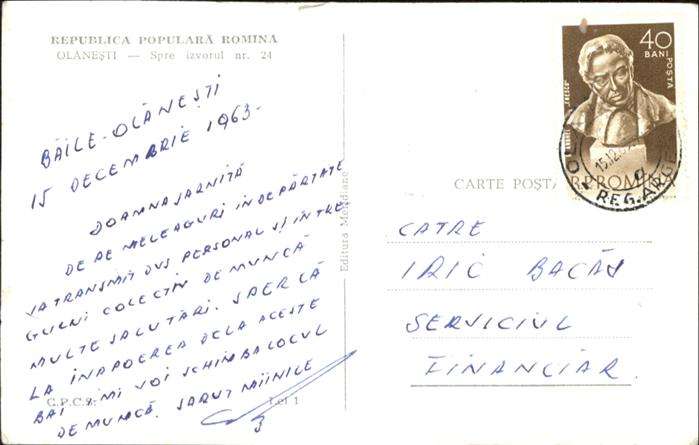 REPUBLICA POPULARĂ ROMINA
OLĂNEȘTI — Spre izvorul nr. 24
BĂILE-OLĂNEȘTI
15 DECEMBRIE 1963-
DOAMNA JARNITĂ
DE PE MELEAGURI INDEPĂRTATE
VA TRANSMIT DVS PERSONAL ȘI ÎNTRE
GULUI COLECTIV DE MUNCĂ
MULTE SALUTĂRI. SPER CĂ
LA ÎNAPOEREA DELA ACESTE
BĂI ÎMI VOI SCHIMBA LOCUL
DE MUNCĂ. SARUT MÎINILE
C.P.C.S. Lei 1
Editura Meridiane
40
BANI
POSTA
R.P.ROMINA
15.12
REG. ARG
CARTE POȘTA
CATRE
IRIC BACĂU
SERVICIUL
FINANCIAR.